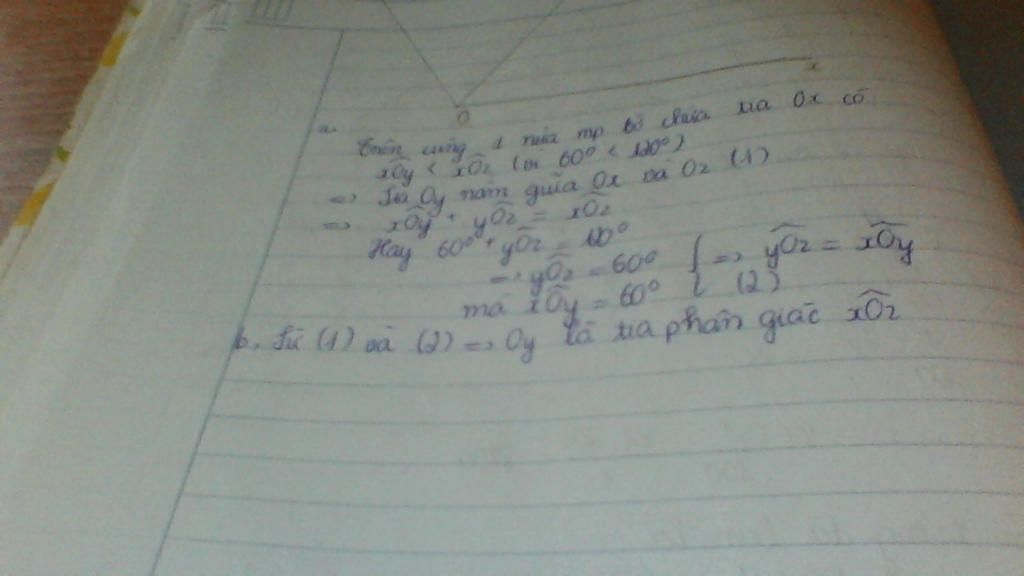 O x
a. Trên cùng 1 nửa mp bờ chứa tia Ox có
xOy < xOz (vì 60° < 120°)
=> Tia Oy nằm giữa Ox và Oz (1)
=> xOy + yOz = xOz
Hay 60° + yOz = 120°
=> yOz = 60° } => yOz = xOy
mà xOy = 60° (2)
b. Từ (1) và (2) => Oy là tia phân giác xOz